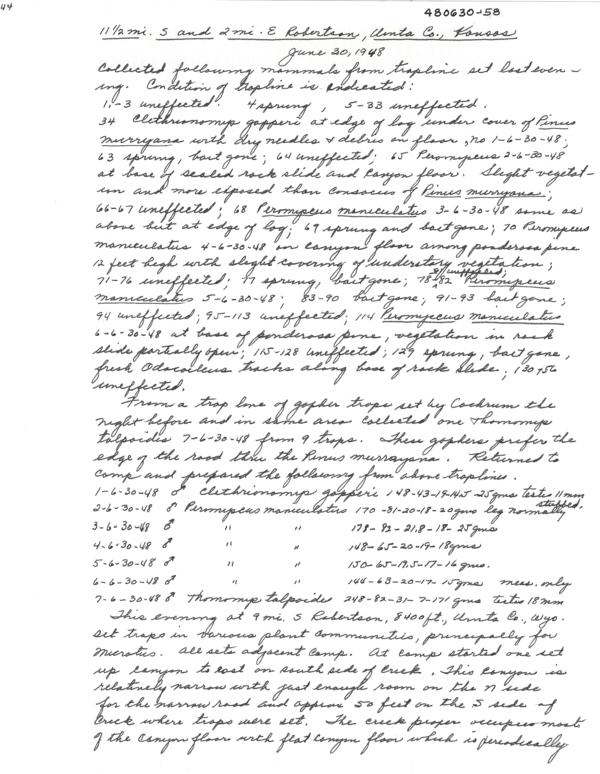 44
480630-58
11 1/2 mi. S and 2 mi. E Robertson, Uinta Co., Kansas
June 30, 1948
Collected following mammals from trapline set last even-
ing. Condition of trapline is indicated:
1-3 uneffected. 4 sprung, 5-33 uneffected.
34 Clethrionomys gapperi at edge of log under cover of Pinus
murryana with dry needles & debris on floor, no 1-6-30-48;
63 sprung, bait gone; 64 uneffected; 65 Peromyscus 2-6-30-48
at base of sealed rock slide and canyon floor. Slight vegetat-
ion and more exposed than consocies of Pinus murryana;
66-67 uneffected; 68 Peromyscus maniculatus 3-6-30-48 same as
above but at edge of log; 69 sprung and bait gone; 70 Peromyscus
maniculatus 4-6-30-48 on canyon floor among ponderosa pine
12 feet high with slight covering of understory vegetation;
71-76 uneffected; 77 sprung, bait gone; 78-81 uneffected; 82 Peromyscus
maniculatus 5-6-30-48; 83-90 bait gone; 91-93 bait gone;
94 uneffected; 95-113 uneffected; 114 Peromyscus maniculatus
6-6-30-48 at base of ponderosa pine, vegetation in rock
slide partially open; 115-128 uneffected; 129 sprung, bait gone,
fresh Odocoileus tracks along base of rock slide; 130-156
uneffected.
From a trap line of gopher traps set by Cockrum the
night before and in same area collected one Thomomys
talpoides 7-6-30-48 from 9 traps. These gophers prefer the
edge of the road thru the Pinus murrayana. Returned to
camp and prepared the following from above traplines.
1-6-30-48 ♂ Clethrionomys gapperi 148-43-19-14.5 25gms testes 11mm
2-6-30-48 ♂ Peromyscus maniculatus 170-81-20-18-20gms leg normally stubbed.
3-6-30-48 ♂ " " 178-82-21.8-18-25gms
4-6-30-48 ♂ " " 148-65-20-19-18gms
5-6-30-48 ♂ " " 150-65-19.5-17-16gms.
6-6-30-48 ♂ " " 144-63-20-17-15gms meas. only
7-6-30-48 ♂ Thomomys talpoides 248-82-31-7-171 gms testes 18mm
This evening at 9 mi. S Robertson, 8400 ft., Uinta Co., Wyo.
set traps in various plant communities, principally for
Microtus. All sets adjacent camp. At camp started one set
up canyon to east on south side of creek. This canyon is
relatively narrow with just enough room on the N side
for the narrow road and approx 50 feet on the S side of
creek where traps were set. The creek proper occupies most
of the canyon floor with flat canyon floor which is periodically